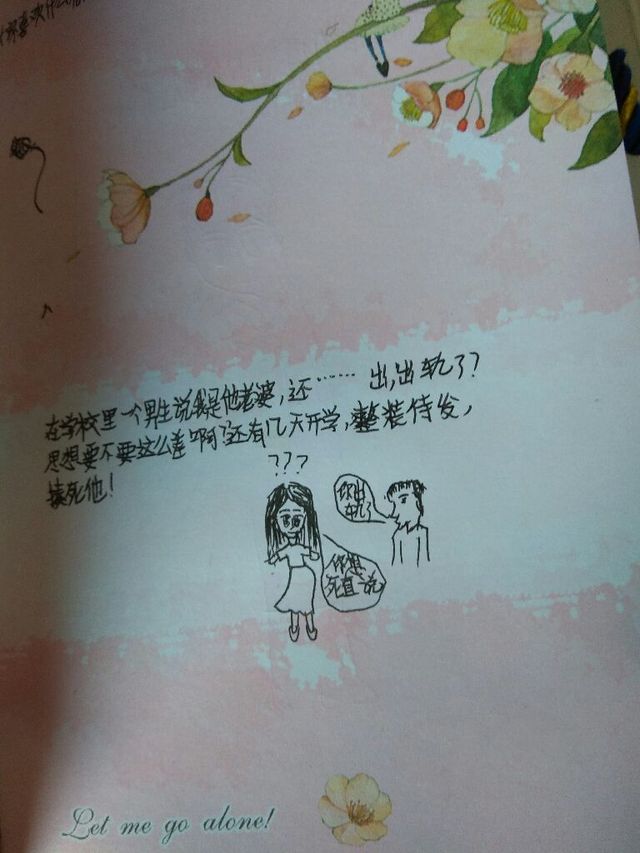 在学校里一个男生说我是他老婆，还…… 出，出轨了？
思想要不要这么差啊？还有几天开学，整装待发，
揍死他！
？？？
你出
轨了
你想
死直说
Let me go alone!